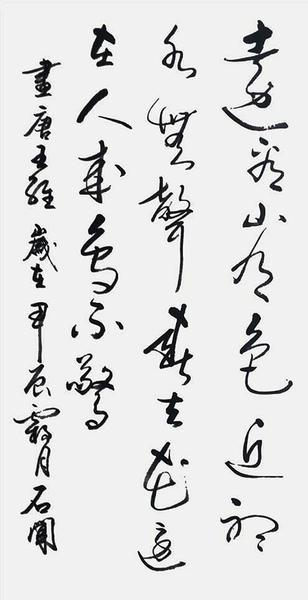 遠看山有色近聽
水無聲春去花還
在人來鳥不驚
畫唐王維歲在甲辰霜月石